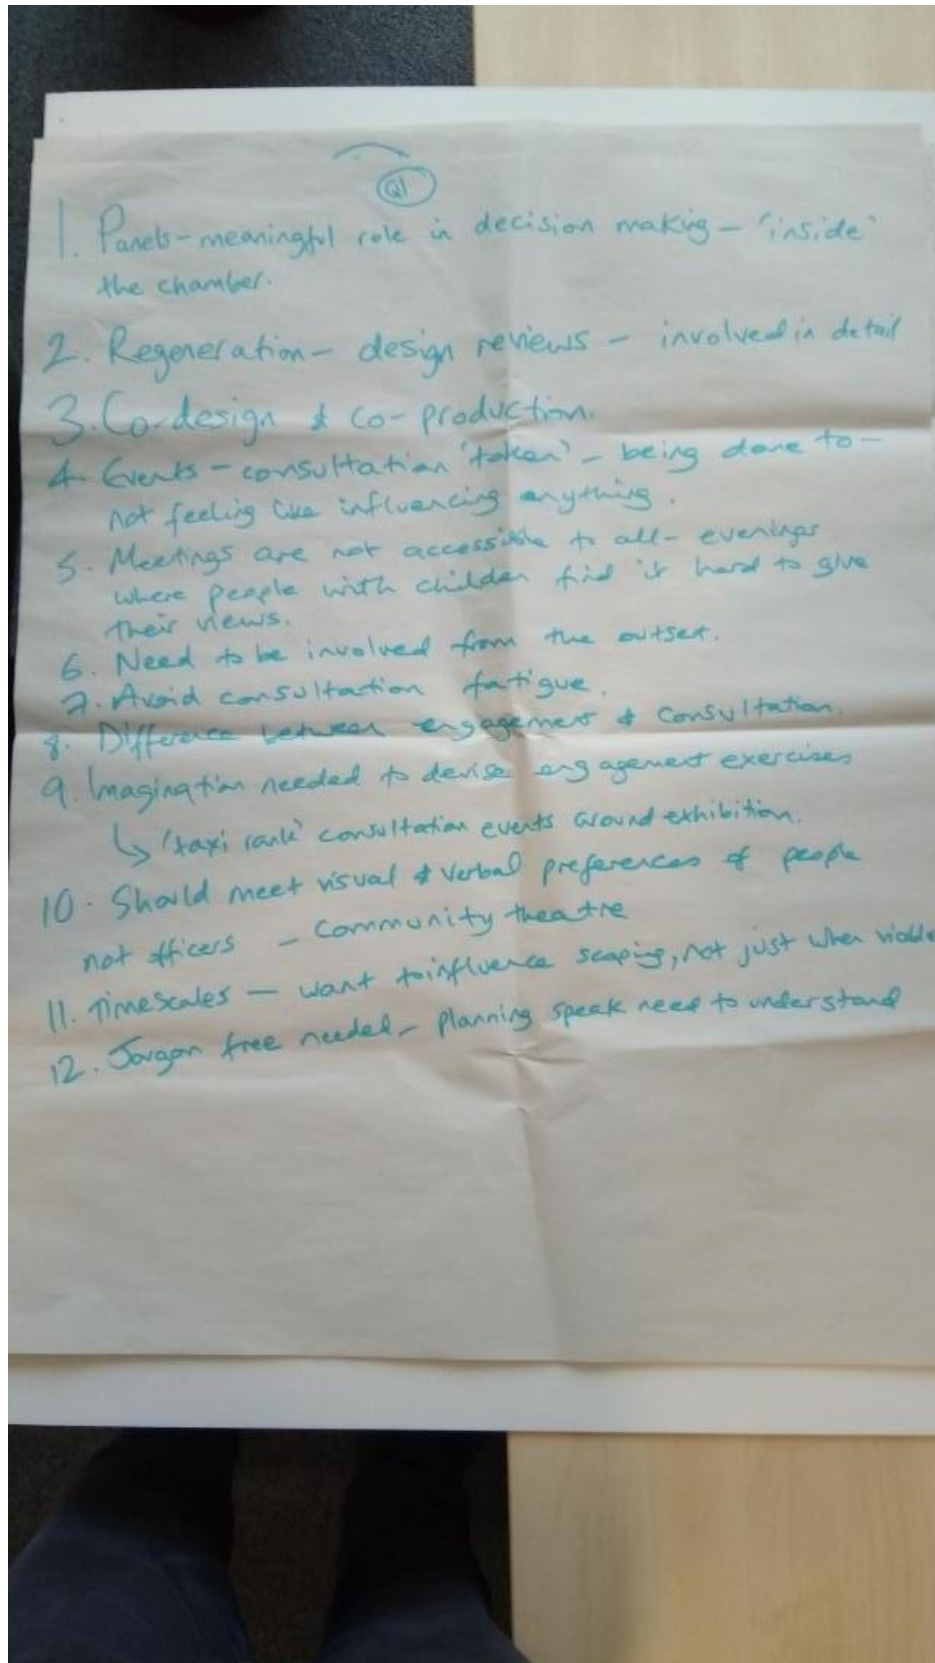 Q1
1. Panels - meaningful role in decision making - 'inside'
the chamber.
2. Regeneration - design reviews - involved in detail
3. Co-design & co-production.
4. Events - consultation 'token' - being done to -
not feeling like influencing anything.
5. Meetings are not accessible to all - evenings
where people with children find it hard to give
their views.
6. Need to be involved from the outset.
7. Avoid consultation fatigue.
8. Difference between engagement & consultation.
9. Imagination needed to devise engagement exercises
↳ 'taxi rank' consultation events around exhibition.
10. Should meet visual & verbal preferences of people
not officers - community theatre
11. Timescales - want to influence scoping, not just when viable
12. Jargon free needed - planning speak need to understand